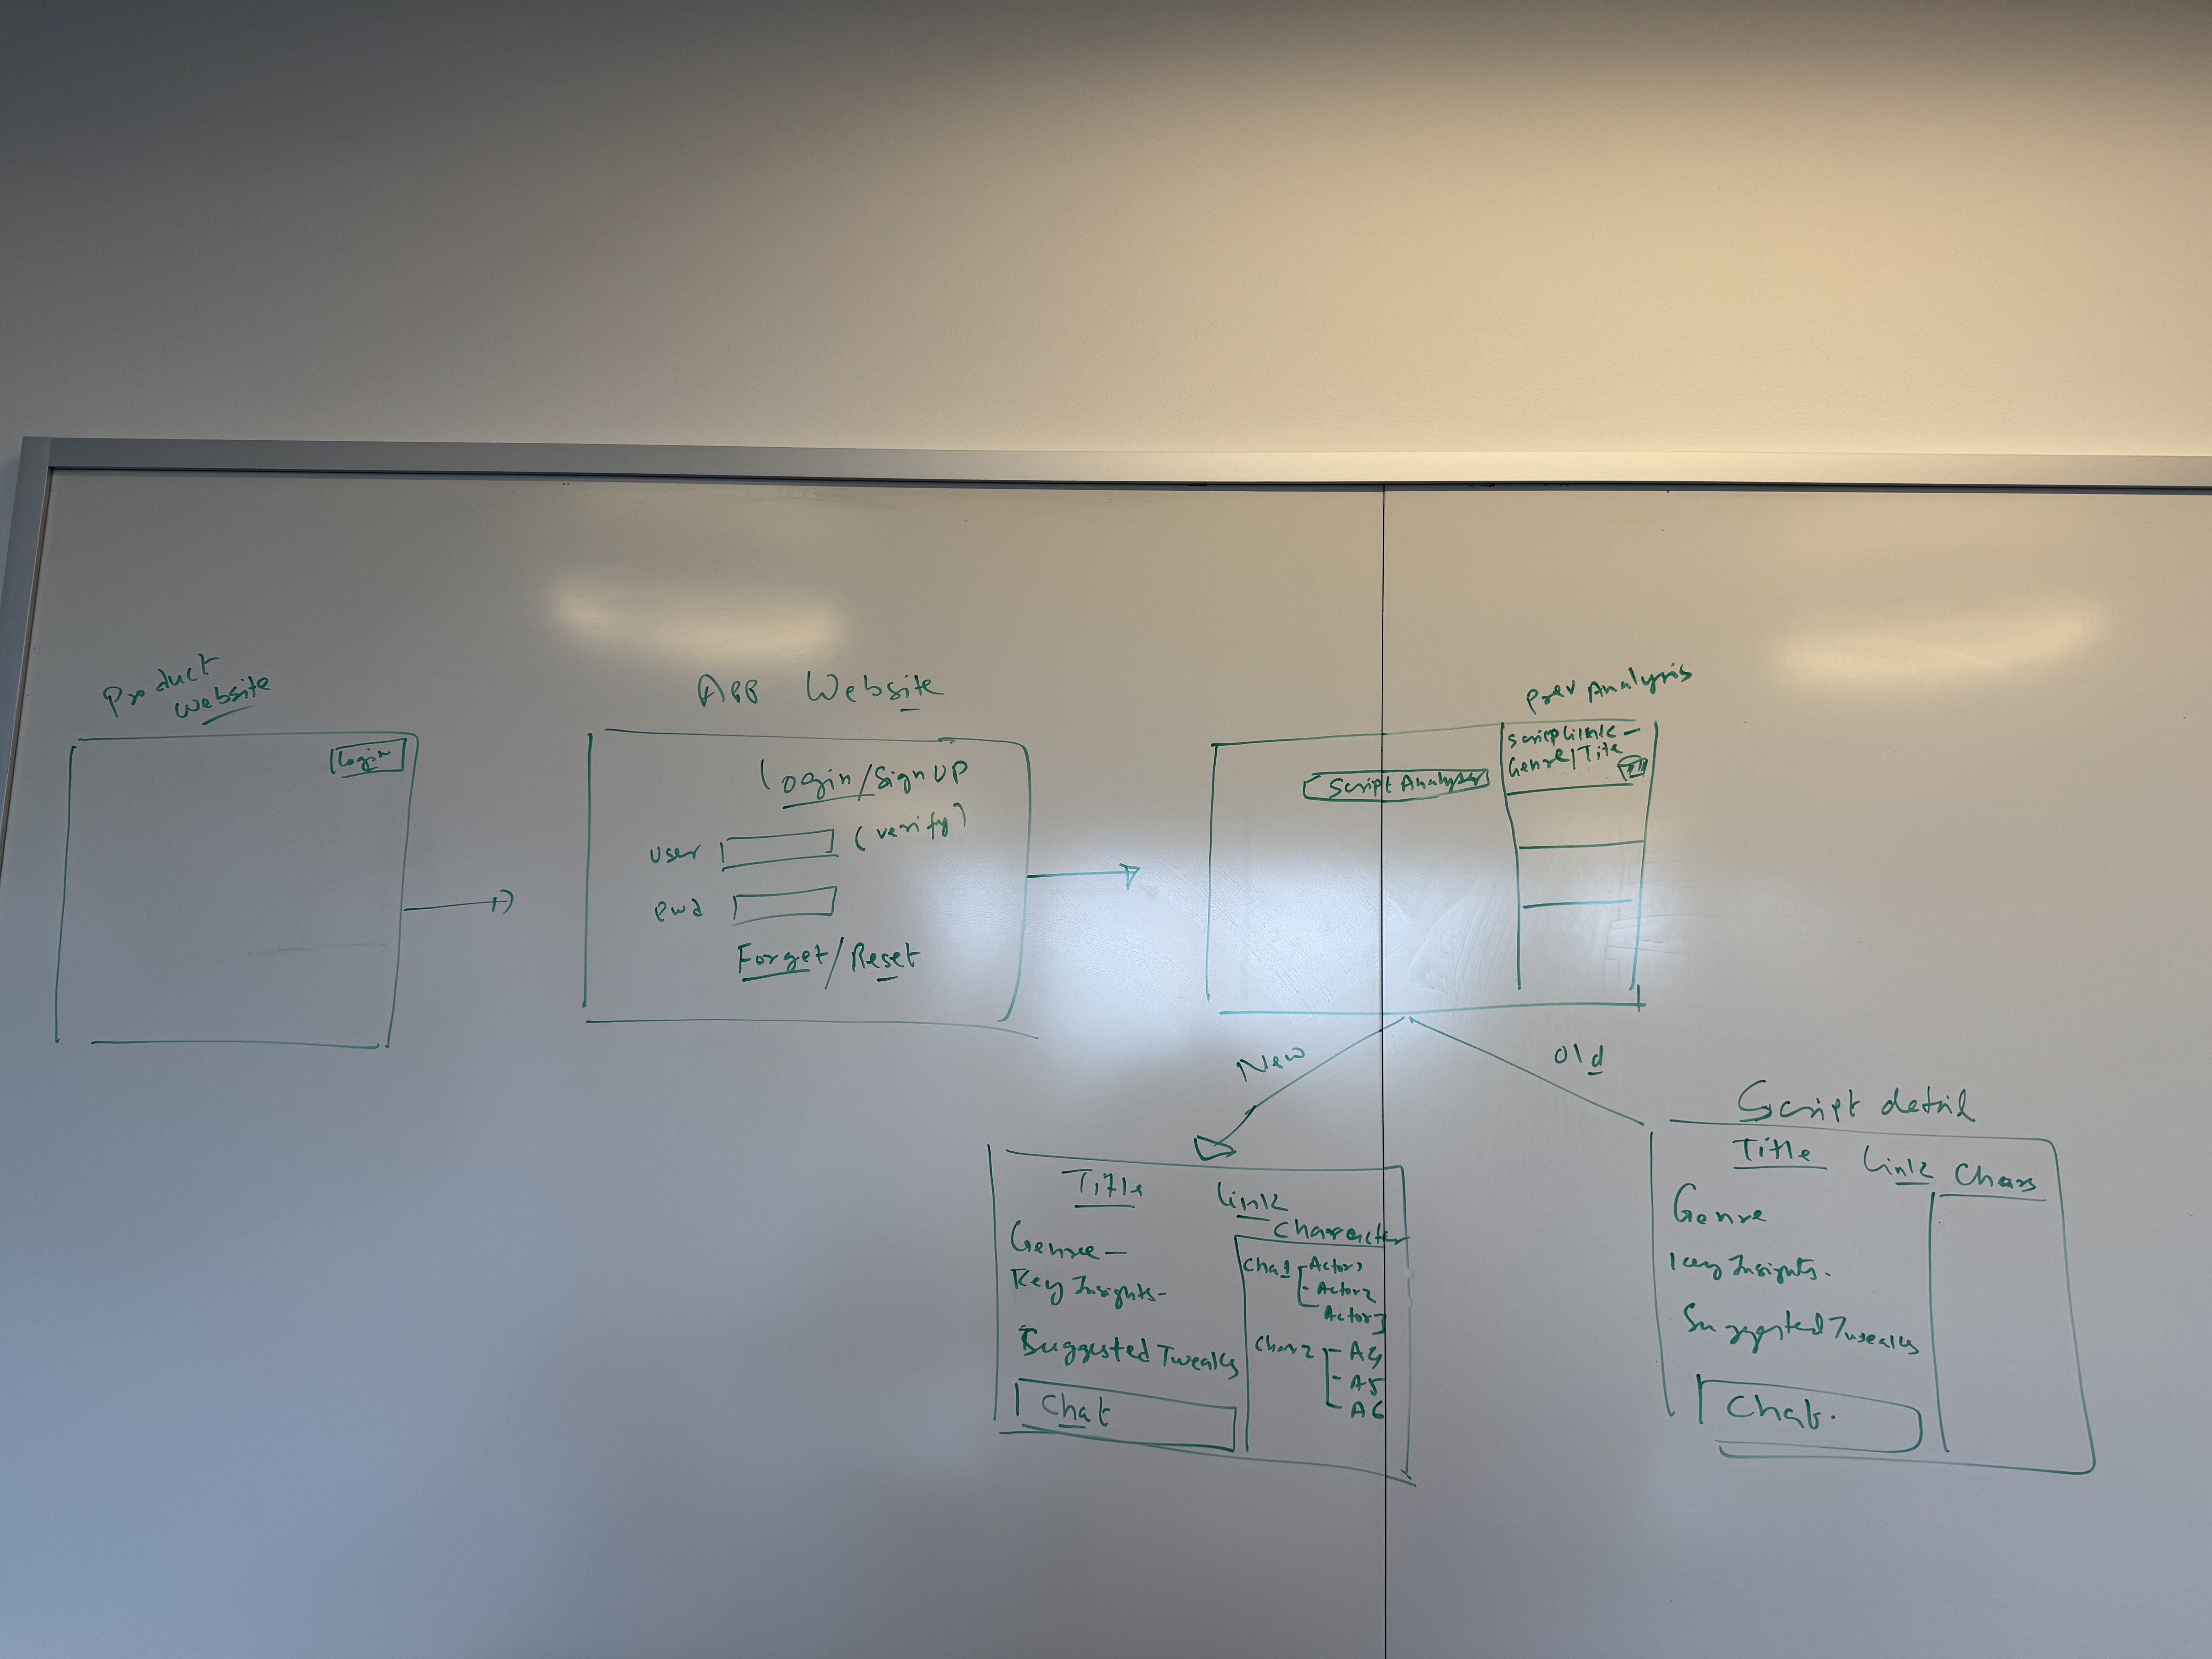 Product
Website
Login
App Website
Login/Sign UP
(verify)
user
pwd
Forget/Reset
Prev Analysis
Script Link -
Genre/Title
Script Analyser
New
Old
Title
Link
Character
Genre -
Key Insights -
Suggested Tweaks
Chat
Cha1 - Actor1
- Actor2
Actor3
Char2 - A4
- A5
- A6
Script detail
Title Link Chars
Genre
Key Insights.
Suggested Tweaks
Chat.